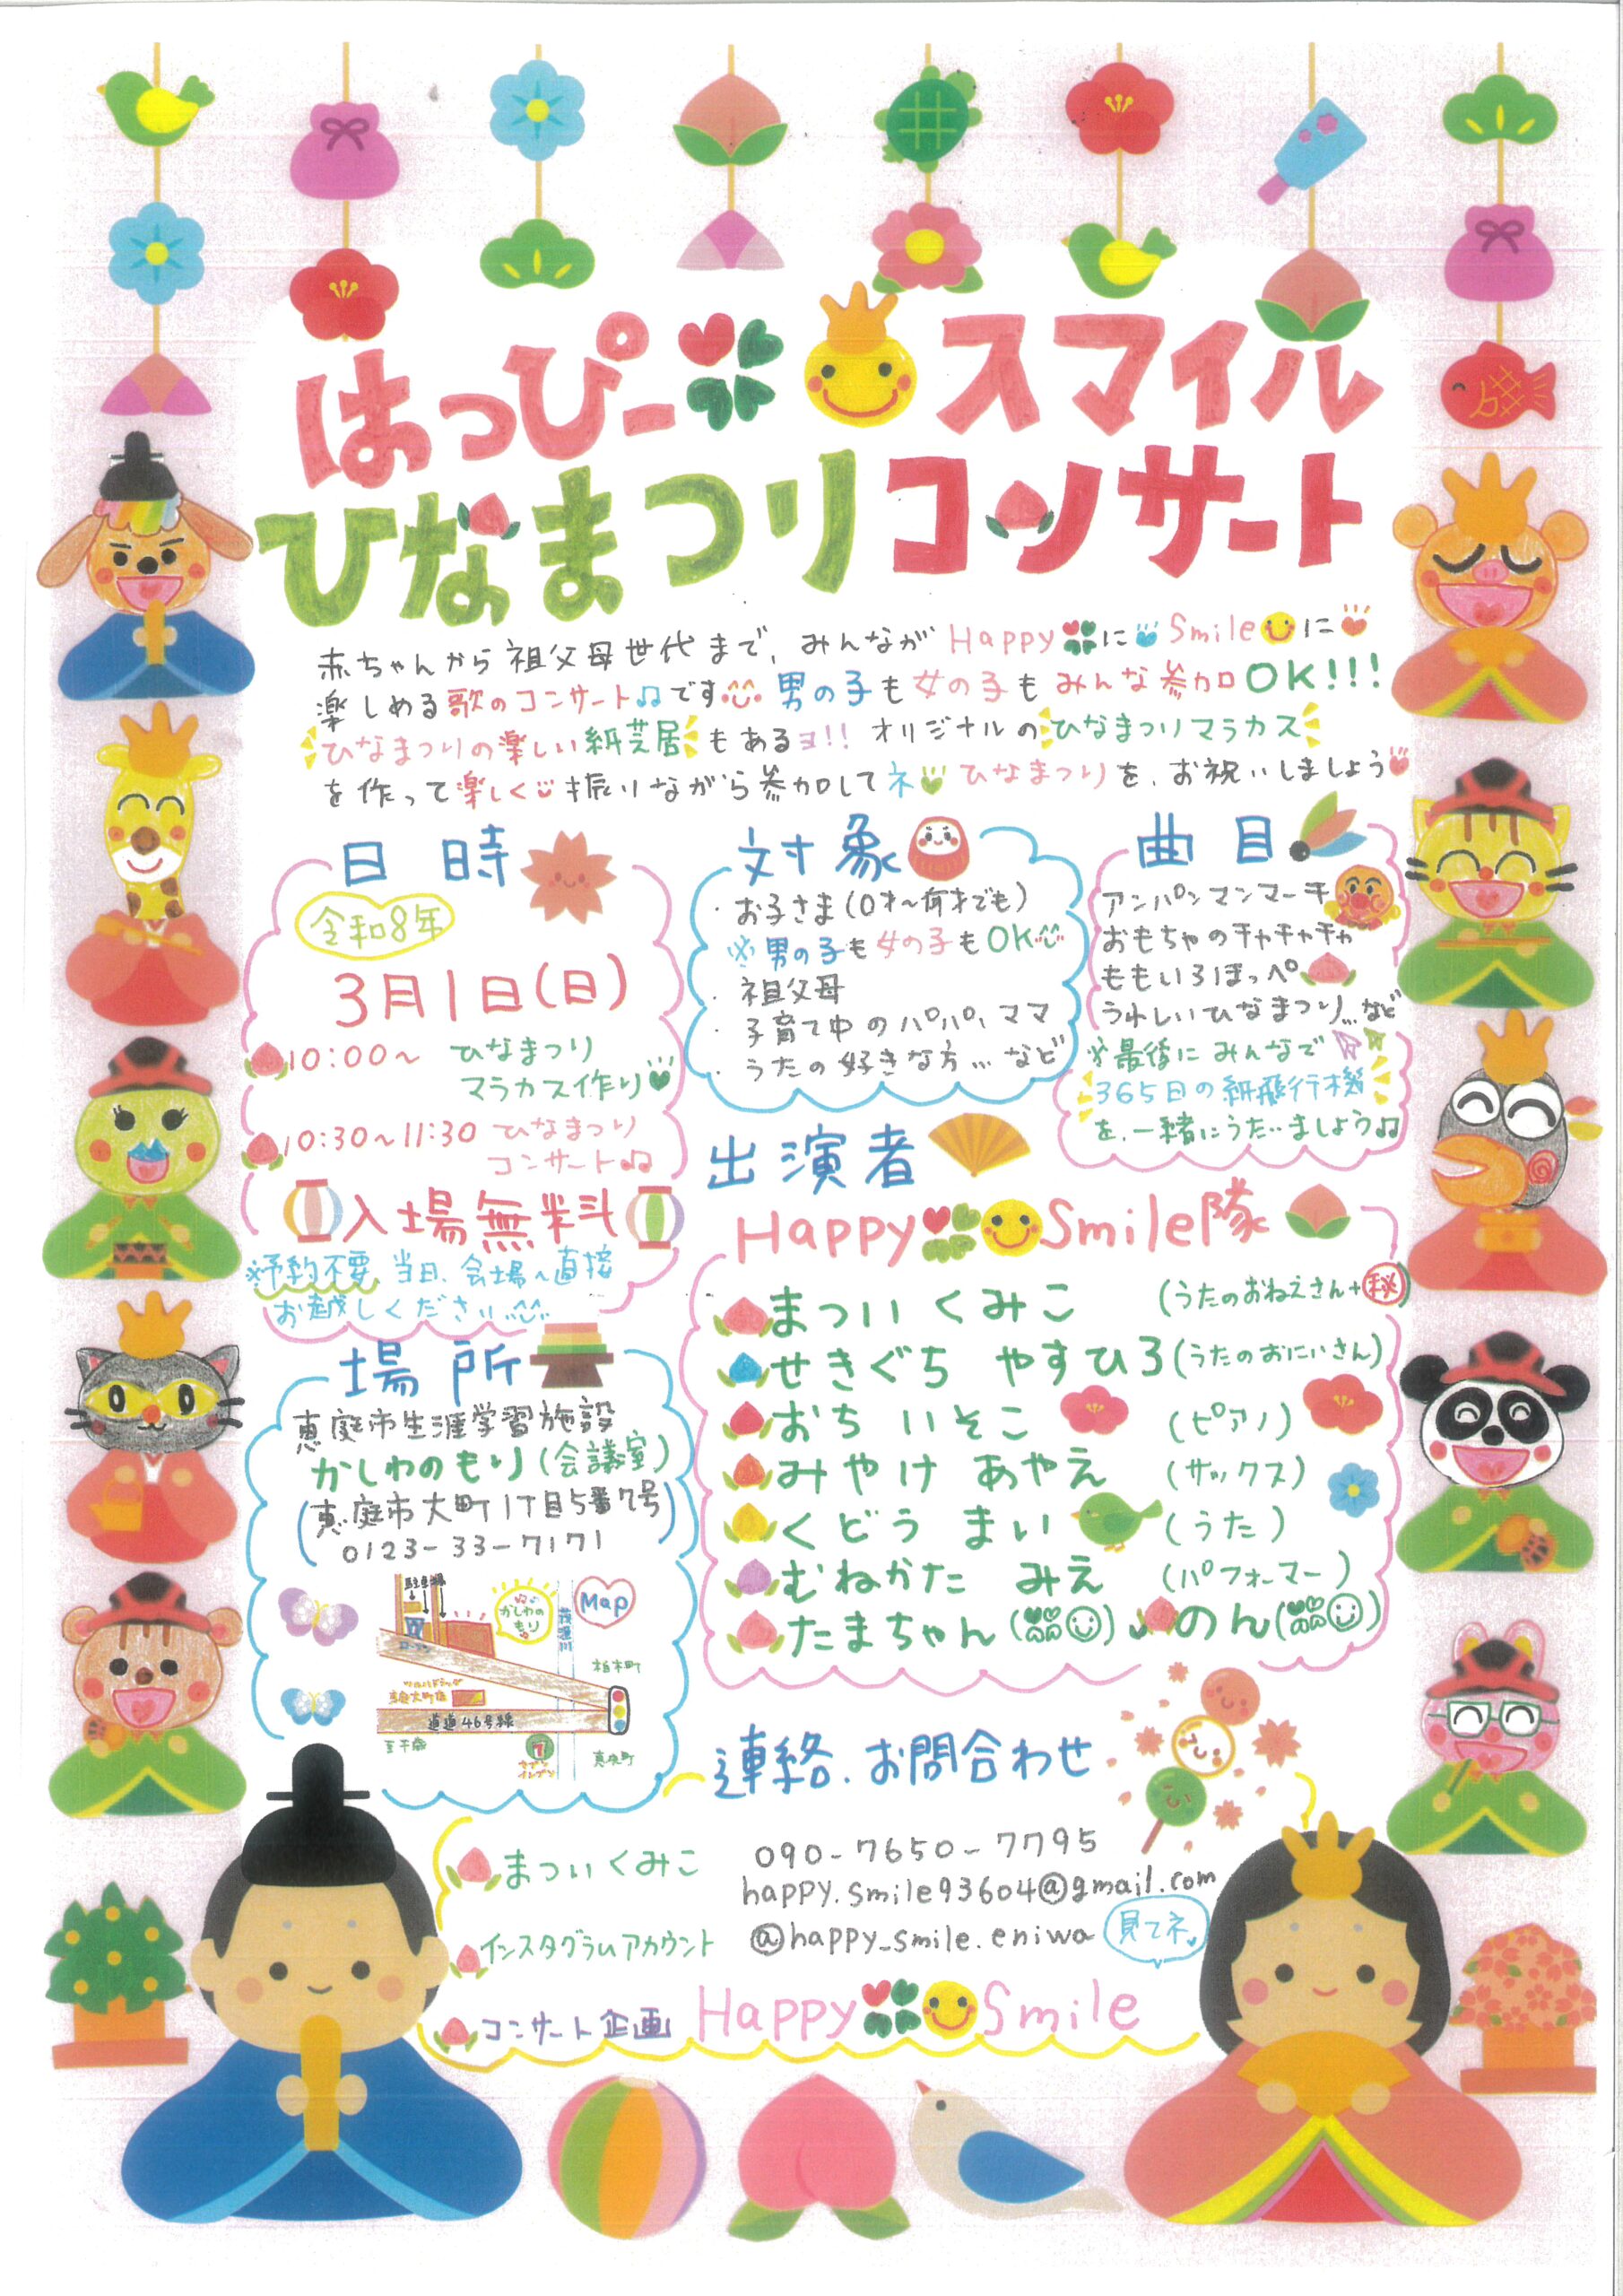 はっぴースマイル
ひなまつりコンサート
赤ちゃんから祖父母世代まで、みんながHappyにSmileに
楽しめる歌のコンサート♫です男の子も女の子もみんな参加OK!!!
ひなまつりの楽しい紙芝居もあるヨ!! オリジナルのひなまつりマラカス
を作って楽しく振りながら参加してネ ひなまつりを、お祝いしましょう
日時
令和8年
3月1日(日)
10:00～ ひなまつり
マラカス作り
10:30～11:30 ひなまつり
コンサート♫
入場無料
※予約不要 当日、会場へ直接
お越しください
対象
・お子さま(0才～何才でも)
※男の子も女の子もOK
・祖父母
・子育て中のパパ、ママ
・うたの好きな方…など
曲目
アンパンマンマーチ
おもちゃのチャチャチャ
ももいろほっぺ
うれしいひなまつり…など
※最後にみんなで
365日の紙飛行機
を、一緒にうたいましょう♫
出演者
HappySmile隊
まつい くみこ (うたのおねえさん+秘)
せきぐち やすひろ(うたのおにいさん)
おち いそこ (ピアノ)
みやけ あやえ (サックス)
くどう まい (うた)
むねかた みえ (パフォーマー)
たまちゃん のん
場所
恵庭市生涯学習施設
かしわのもり(会議室)
(恵庭市大町1丁目5番7号)
0123-33-7171
駐車場
かしわの
もり
Map
茂漁川
柏木町
恵庭大町店
道道46号線
至千歳
セブン
イレブン
連絡.お問合わせ
まついくみこ 090-7650-7795
happy.smile93604@gmail.com
インスタグラムアカウント @happy_smile.eniwa 見てネ
コンサート企画 HappySmile